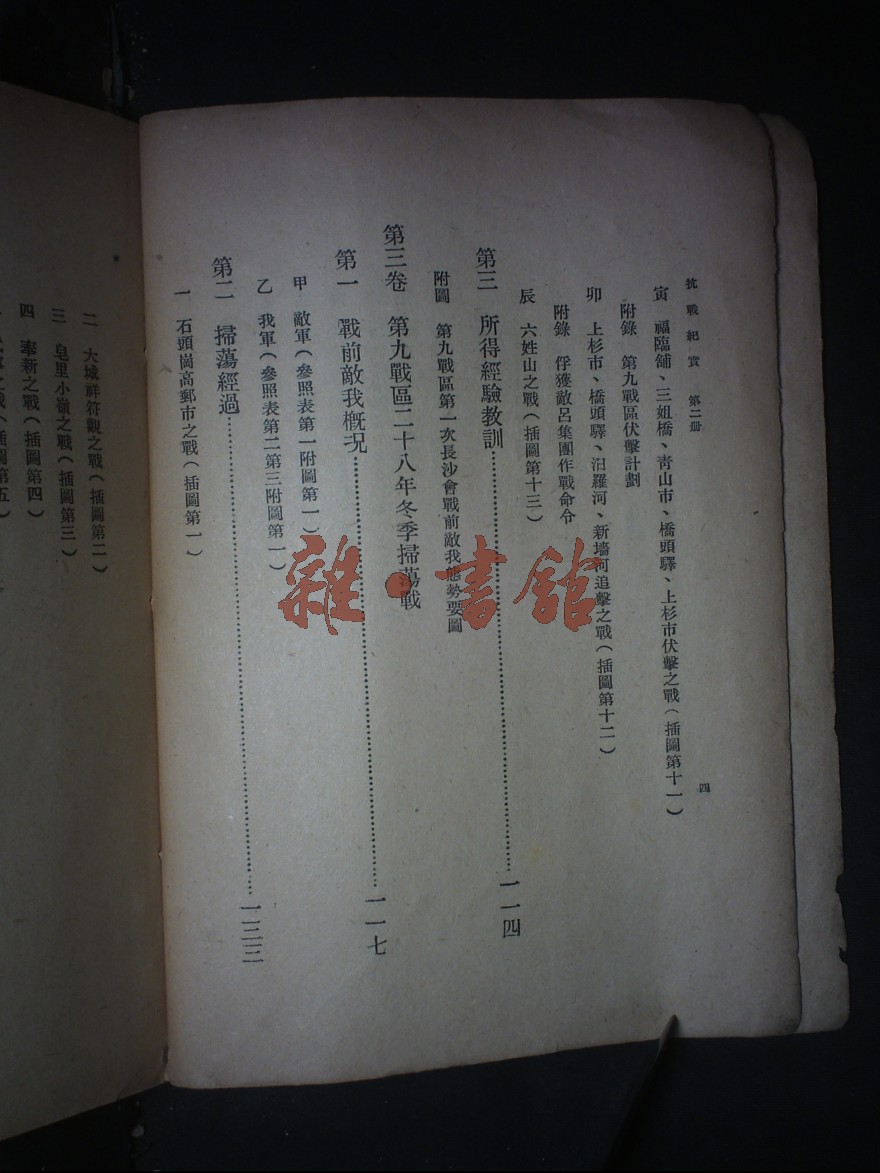 抗戰紀實 第二册
四
寅 福臨舖、三姐橋、青山市、橋頭驛、上杉市伏擊之戰(插圖第十一)
附錄 第九戰區伏擊計劃
卯 上杉市、橋頭驛、汨羅河、新墻河追擊之戰(插圖第十二)
附錄 俘獲敵呂集團作戰命令
辰 六姓山之戰(插圖第十三)
第三 所得經驗教訓……一一四
附圖 第九戰區第一次長沙會戰前敵我態勢要圖
第三卷 第九戰區二十八年冬季掃蕩戰
第一 戰前敵我槪況……一一七
甲 敵軍(參照表第一附圖第一)
乙 我軍(參照表第二第三附圖第一)
第二 掃蕩經過……一三三
一 石頭崗高郵市之戰(插圖第一)
二 大城祥符觀之戰(插圖第二)
三 皂里小嶺之戰(插圖第三)
四 奉新之戰(插圖第四)
之戰(插圖第五)
雜·書館